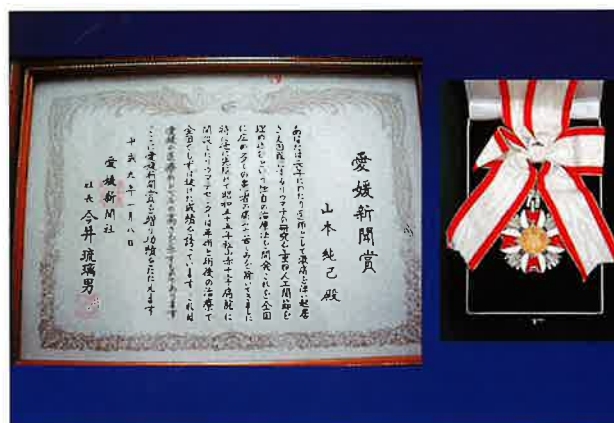 愛媛新聞賞
山本純己殿
あなたは長年にわたり医師として激痛を伴い起居
さえ困難になるリウマチの研究を重ね人工関節を
埋め込むという独自の治療法を開発これを全国
に広め多くの患者の痛みや苦しみを除いてきました
特に他に先がけて昭和五十五年松山赤十字病院に
開設したリウマチセンターは手術と術後の治療で
全国でもまれな優れた成績を誇っています これは
愛媛の医療のレベルの高さを示すものであります
ここに愛媛新聞賞を贈り功績をたたえます
平成九年一月八日
愛媛新聞社
社長 今井琉璃男